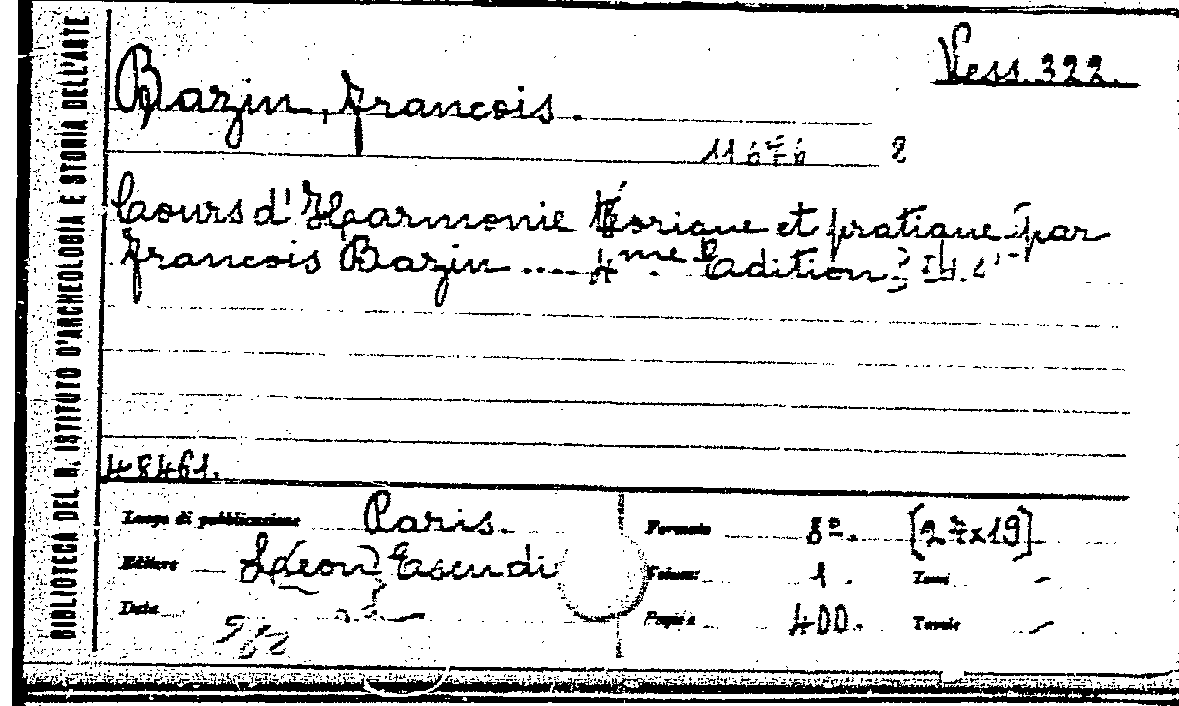 BIBLIOTECA DEL R. ISTITUTO D'ARCHEOLOGIA E STORIA DELL'ARTE
Vess. 322.
Bazin, Francois.
11676 8
Cours d'Harmonie téorique et pratique par
Francois Bazin .... 4me Edition
48461.
Luogo di pubblicazione Paris.
Formato 8º. [27x19]
Editore Léon Escudi
Volumi 1. Tomi -
Data
Pagine 400. Tavole -